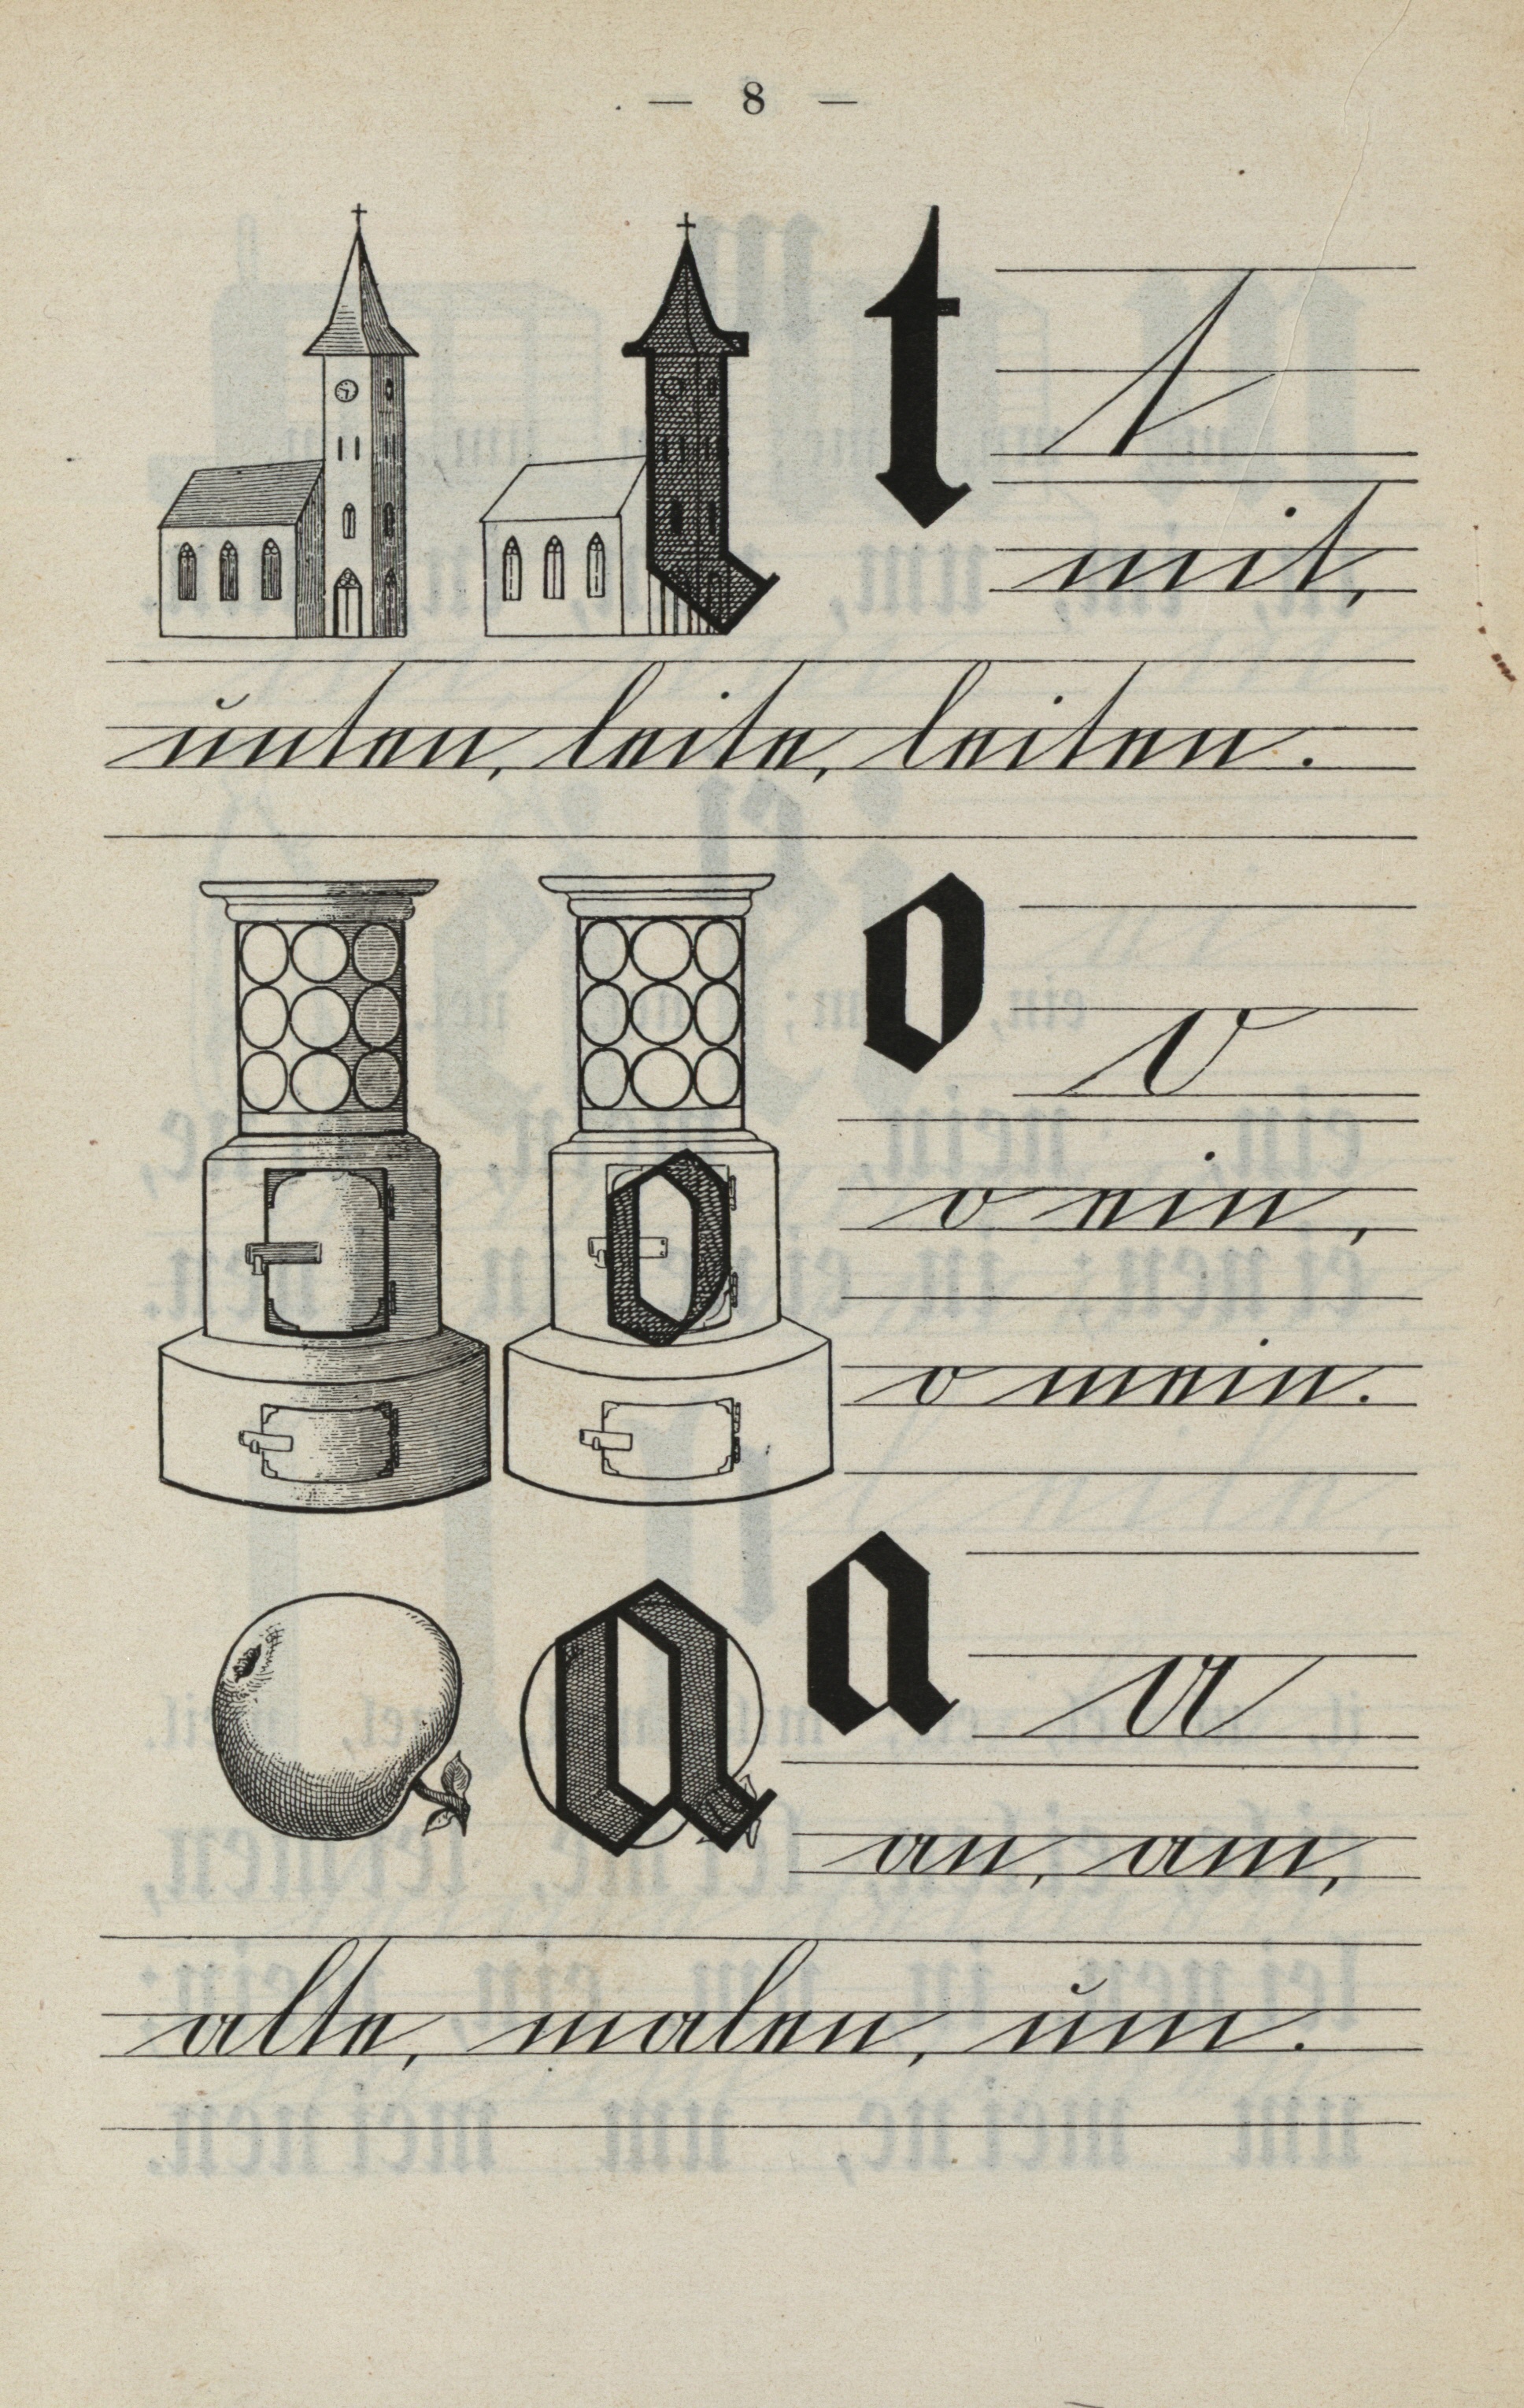 — 8 —
t t
mit,
unten, leite, leiten.
o o
o ein,
o mein.
a a
an, am,
alte, malen, um.